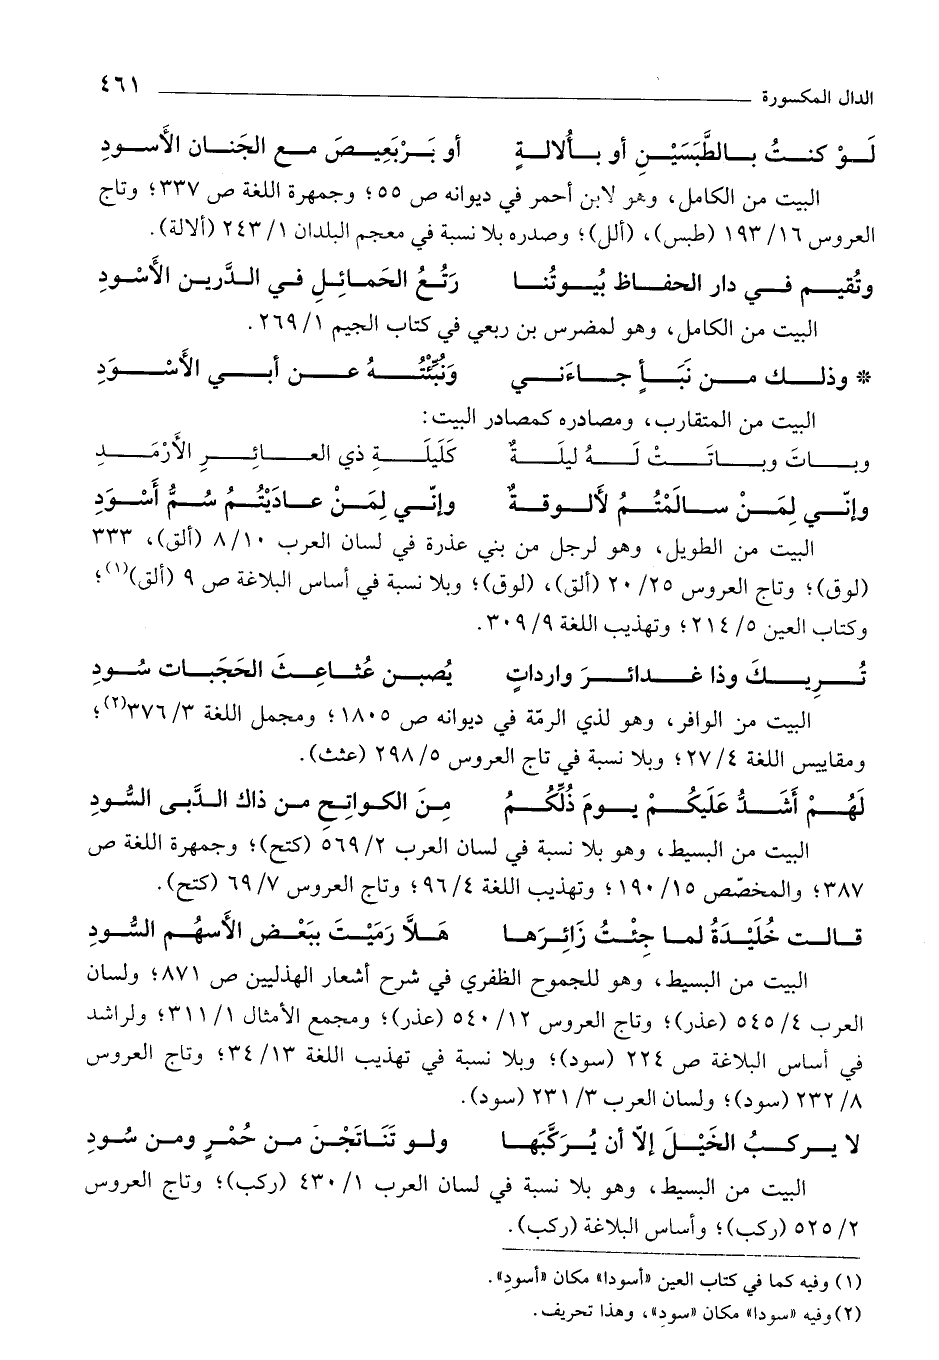 الدال المكسورة ٤٦١
لَوْ كنتُ بالطَّبَسَيْنِ أو بأُلالةٍ أو بَرْبَعِيصَ مع الجَنان الأَسودِ
البيت من الكامل، وهو لابن أحمر في ديوانه ص ٥٥؛ وجمهرة اللغة ص ٣٣٧؛ وتاج
العروس ١٦/ ١٩٣ (طبس)، (ألل)؛ وصدره بلا نسبة في معجم البلدان ١/ ٢٤٣ (ألالة).
وتُقيم في دار الحفاظ بُيوتُنا رَتْعُ الحَمائِلِ في الدَّرين الأَسْودِ
البيت من الكامل، وهو لمضرس بن ربعي في كتاب الجيم ١/ ٢٦٩.
* وذلك من نَبَأٍ جاءَني وَنُبِّئْتُهُ عن أبي الأَسْوَدِ
البيت من المتقارب، ومصادره كمصادر البيت:
وباتَ وباتَتْ لَهُ ليلَةٌ كَلَيلَةِ ذي العائِرِ الأَرْمَدِ
وإنّي لِمَنْ سالَمْتُمُ لأَلوقةٌ وإنّي لِمَنْ عادَيْتُم سُمُّ أَسْوَدِ
البيت من الطويل، وهو لرجل من بني عذرة في لسان العرب ١٠/ ٨ (ألق)، ٣٣٣
(لوق)؛ وتاج العروس ٢٥/ ٢٠ (ألق)، (لوق)؛ وبلا نسبة في أساس البلاغة ص ٩ (ألق)(١)؛
وكتاب العين ٥/ ٢١٤؛ وتهذيب اللغة ٩/ ٣٠٩.
تُريكَ وذا غدائرَ وارداتٍ يُصبن عُثاعِثَ الحَجَبات سُودِ
البيت من الوافر، وهو لذي الرمّة في ديوانه ص ١٨٠٥؛ ومجمل اللغة ٣/ ٣٧٦(٢)؛
ومقاييس اللغة ٤/ ٢٧؛ وبلا نسبة في تاج العروس ٥/ ٢٩٨ (عثث).
لَهُمْ أَشَدُّ عَلَيكُمْ يومَ ذُلِّكُمُ مِنَ الكواتِحِ من ذاك الدَّبى السُّودِ
البيت من البسيط، وهو بلا نسبة في لسان العرب ٢/ ٥٦٩ (كتح)؛ وجمهرة اللغة ص
٣٨٧؛ والمخصّص ١٥/ ١٩٠؛ وتهذيب اللغة ٤/ ٩٦؛ وتاج العروس ٧/ ٦٩ (كتح).
قالت خُلَيْدَةُ لما جِئْتُ زَائِرَها هَلاَّ رَمَيْتَ بِبَعْض الأَسهُم السُّودِ
البيت من البسيط، وهو للجموح الظفري في شرح أشعار الهذليين ص ٨٧١؛ ولسان
العرب ٤/ ٥٤٥ (عذر)؛ وتاج العروس ١٢/ ٥٤٠ (عذر)؛ ومجمع الأمثال ١/ ٣١١؛ ولراشد
في أساس البلاغة ص ٢٢٤ (سود)؛ وبلا نسبة في تهذيب اللغة ١٣/ ٣٤؛ وتاج العروس
٨/ ٢٣٢ (سود)؛ ولسان العرب ٣/ ٢٣١ (سود).
لا يركبُ الخَيْلَ إلاّ أن يُرَكَّبَها ولو تَنَاتَجْنَ من حُمْرٍ ومن سُودِ
البيت من البسيط، وهو بلا نسبة في لسان العرب ١/ ٤٣٠ (ركب)؛ وتاج العروس
٢/ ٥٢٥ (ركب)؛ وأساس البلاغة (ركب).
(١) وفيه كما في كتاب العين «أسودا» مكان «أسودِ».
(٢) وفيه «سودا» مكان «سودِ»، وهذا تحريف.